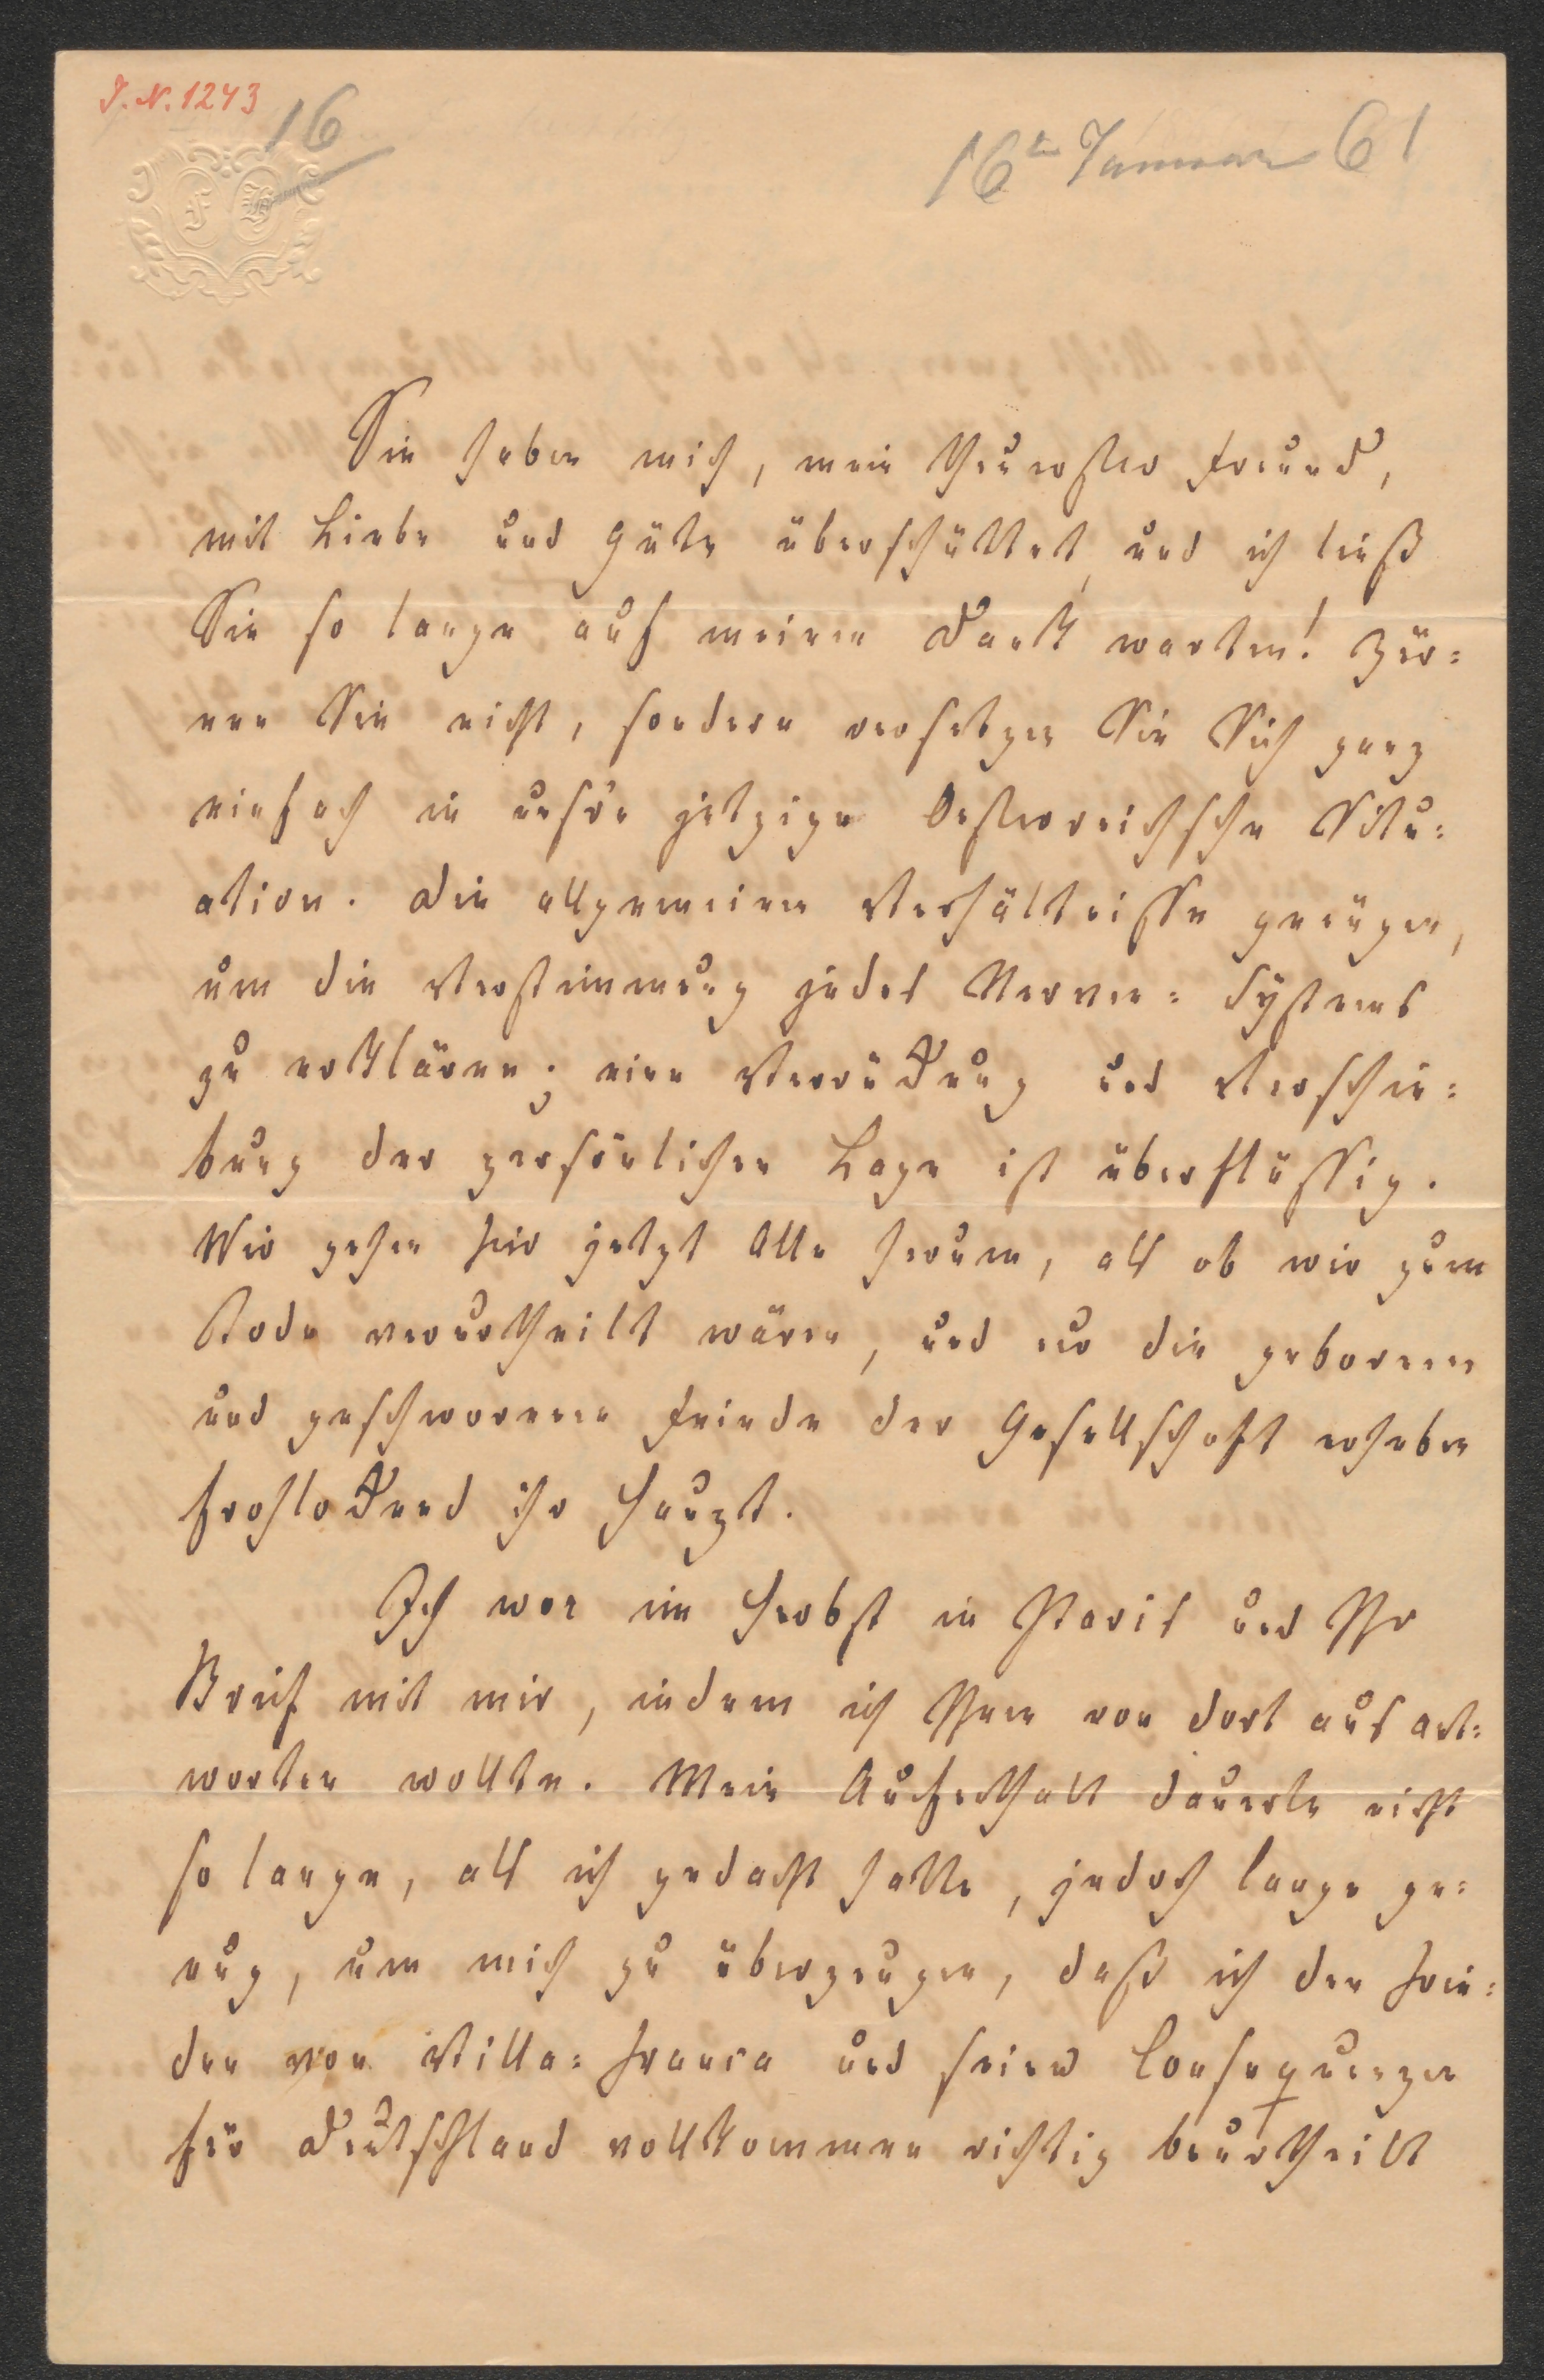 J. N. 1243
16
16t Januar 61
F H
Sie haben mich, mein theuerster Freund,
mit Liebe und Güte überschüttet, und ich ließ
Sie so lange auf meinen Dank warten! Zür=
nen Sie nicht, sondern versetzen Sie Sich ganz
einfach in unsre jetzige Oesterreichsche Situ=
ation. Die allgemeinen Verhältnisse genügen,
um die Verstimmung jedes Nerven=Systems
zu erklären; eine Verrückung und Verschie=
bung der persönlichen Lage ist überflüssig.
Wir gehen hir jetzt Alle herum, als ob wir zum
Tode verurtheilt wären, und nur die geborenen
und geschworenen Feinde der Gesellschaft erheben
frohlockend ihr Haupt.
Ich war im Herbst in Paris und Ihr
Brief mit mir, indem ich Ihnen von dort aus ant=
worten wollte. Mein Aufenthalt dauerte nicht
so lange, als ich gedacht hatte, jedoch lange ge=
nug, um mich zu überzeugen, daß ich den Frie=
den von Villa=franca und seine Consequenzen
für Deutschland vollkommen richtig beurtheilt